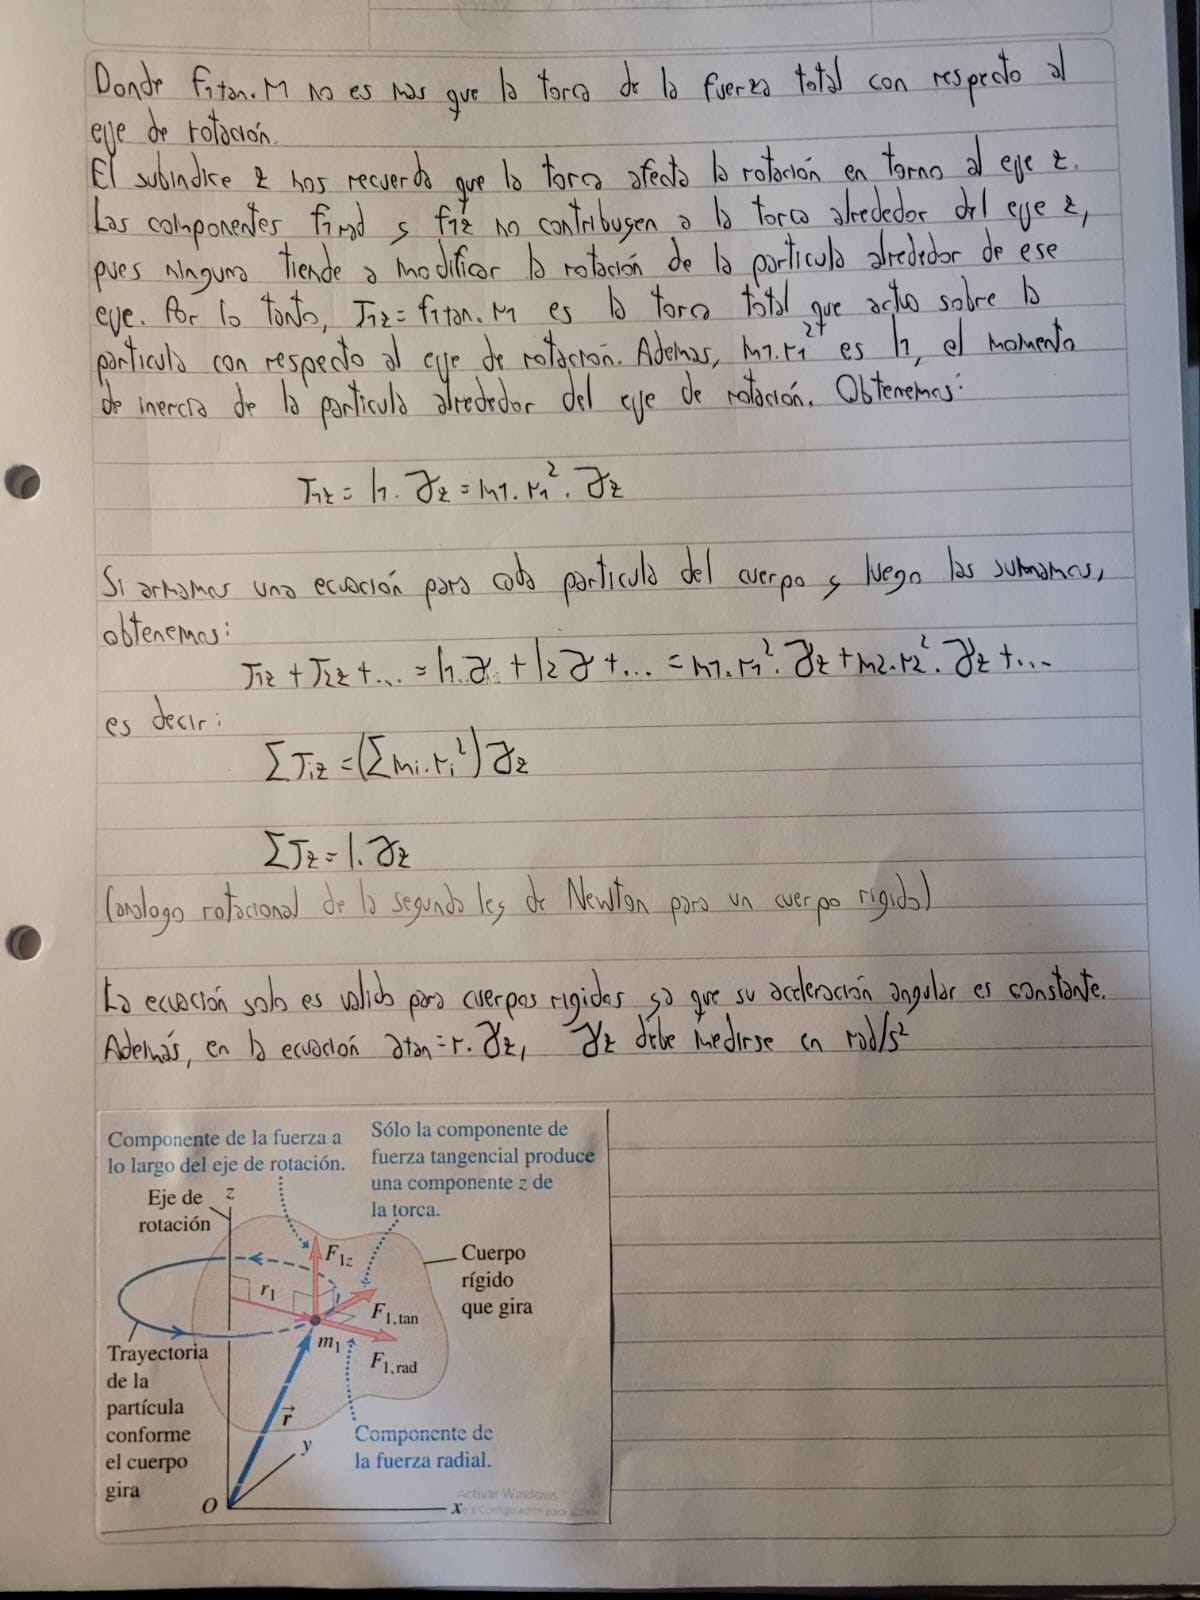 Donde F1tan.r1 no es mas que la torca de la fuerza total con respecto al
eje de rotación.
El subindice z nos recuerda que la torca afecta la rotación en torno al eje z.
Las componentes F1rad y F1z no contribuyen a la torca alrededor del eje z,
pues ninguna tiende a modificar la rotación de la particula alrededor de ese
eje. Por lo tanto, τ1z = F1tan.r1 es la torca total que actua sobre la
particula con respecto al eje de rotación. Ademas, m1.r1² es I1, el momento
de inercia de la particula alrededor del eje de rotación. Obtenemos:
τ1z = I1.αz = m1.r1².αz
Si armamos una ecuación para cada particula del cuerpo y luego las sumamos,
obtenemos:
τ1z + τ2z + ... = I1.α + I2 α + ... = m1.r1².αz + m2.r2².αz + ...
es decir:
Στiz = (Σmi.ri²) αz
Στz = I.αz
(analogo rotacional de la segunda ley de Newton para un cuerpo rigido)
La ecuación solo es valida para cuerpos rigidos ya que su aceleración angular es constante.
Además, en la ecuación atan = r.αz, αz debe medirse en rad/s²
Componente de la fuerza a
lo largo del eje de rotación.
Sólo la componente de
fuerza tangencial produce
una componente z de
la torca.
Eje de
rotación
z
F1z
Cuerpo
rígido
que gira
r1
F1,tan
m1
F1,rad
Trayectoria
de la
partícula
conforme
el cuerpo
gira
r⃗
y
Componente de
la fuerza radial.
O
x
Activar Windows